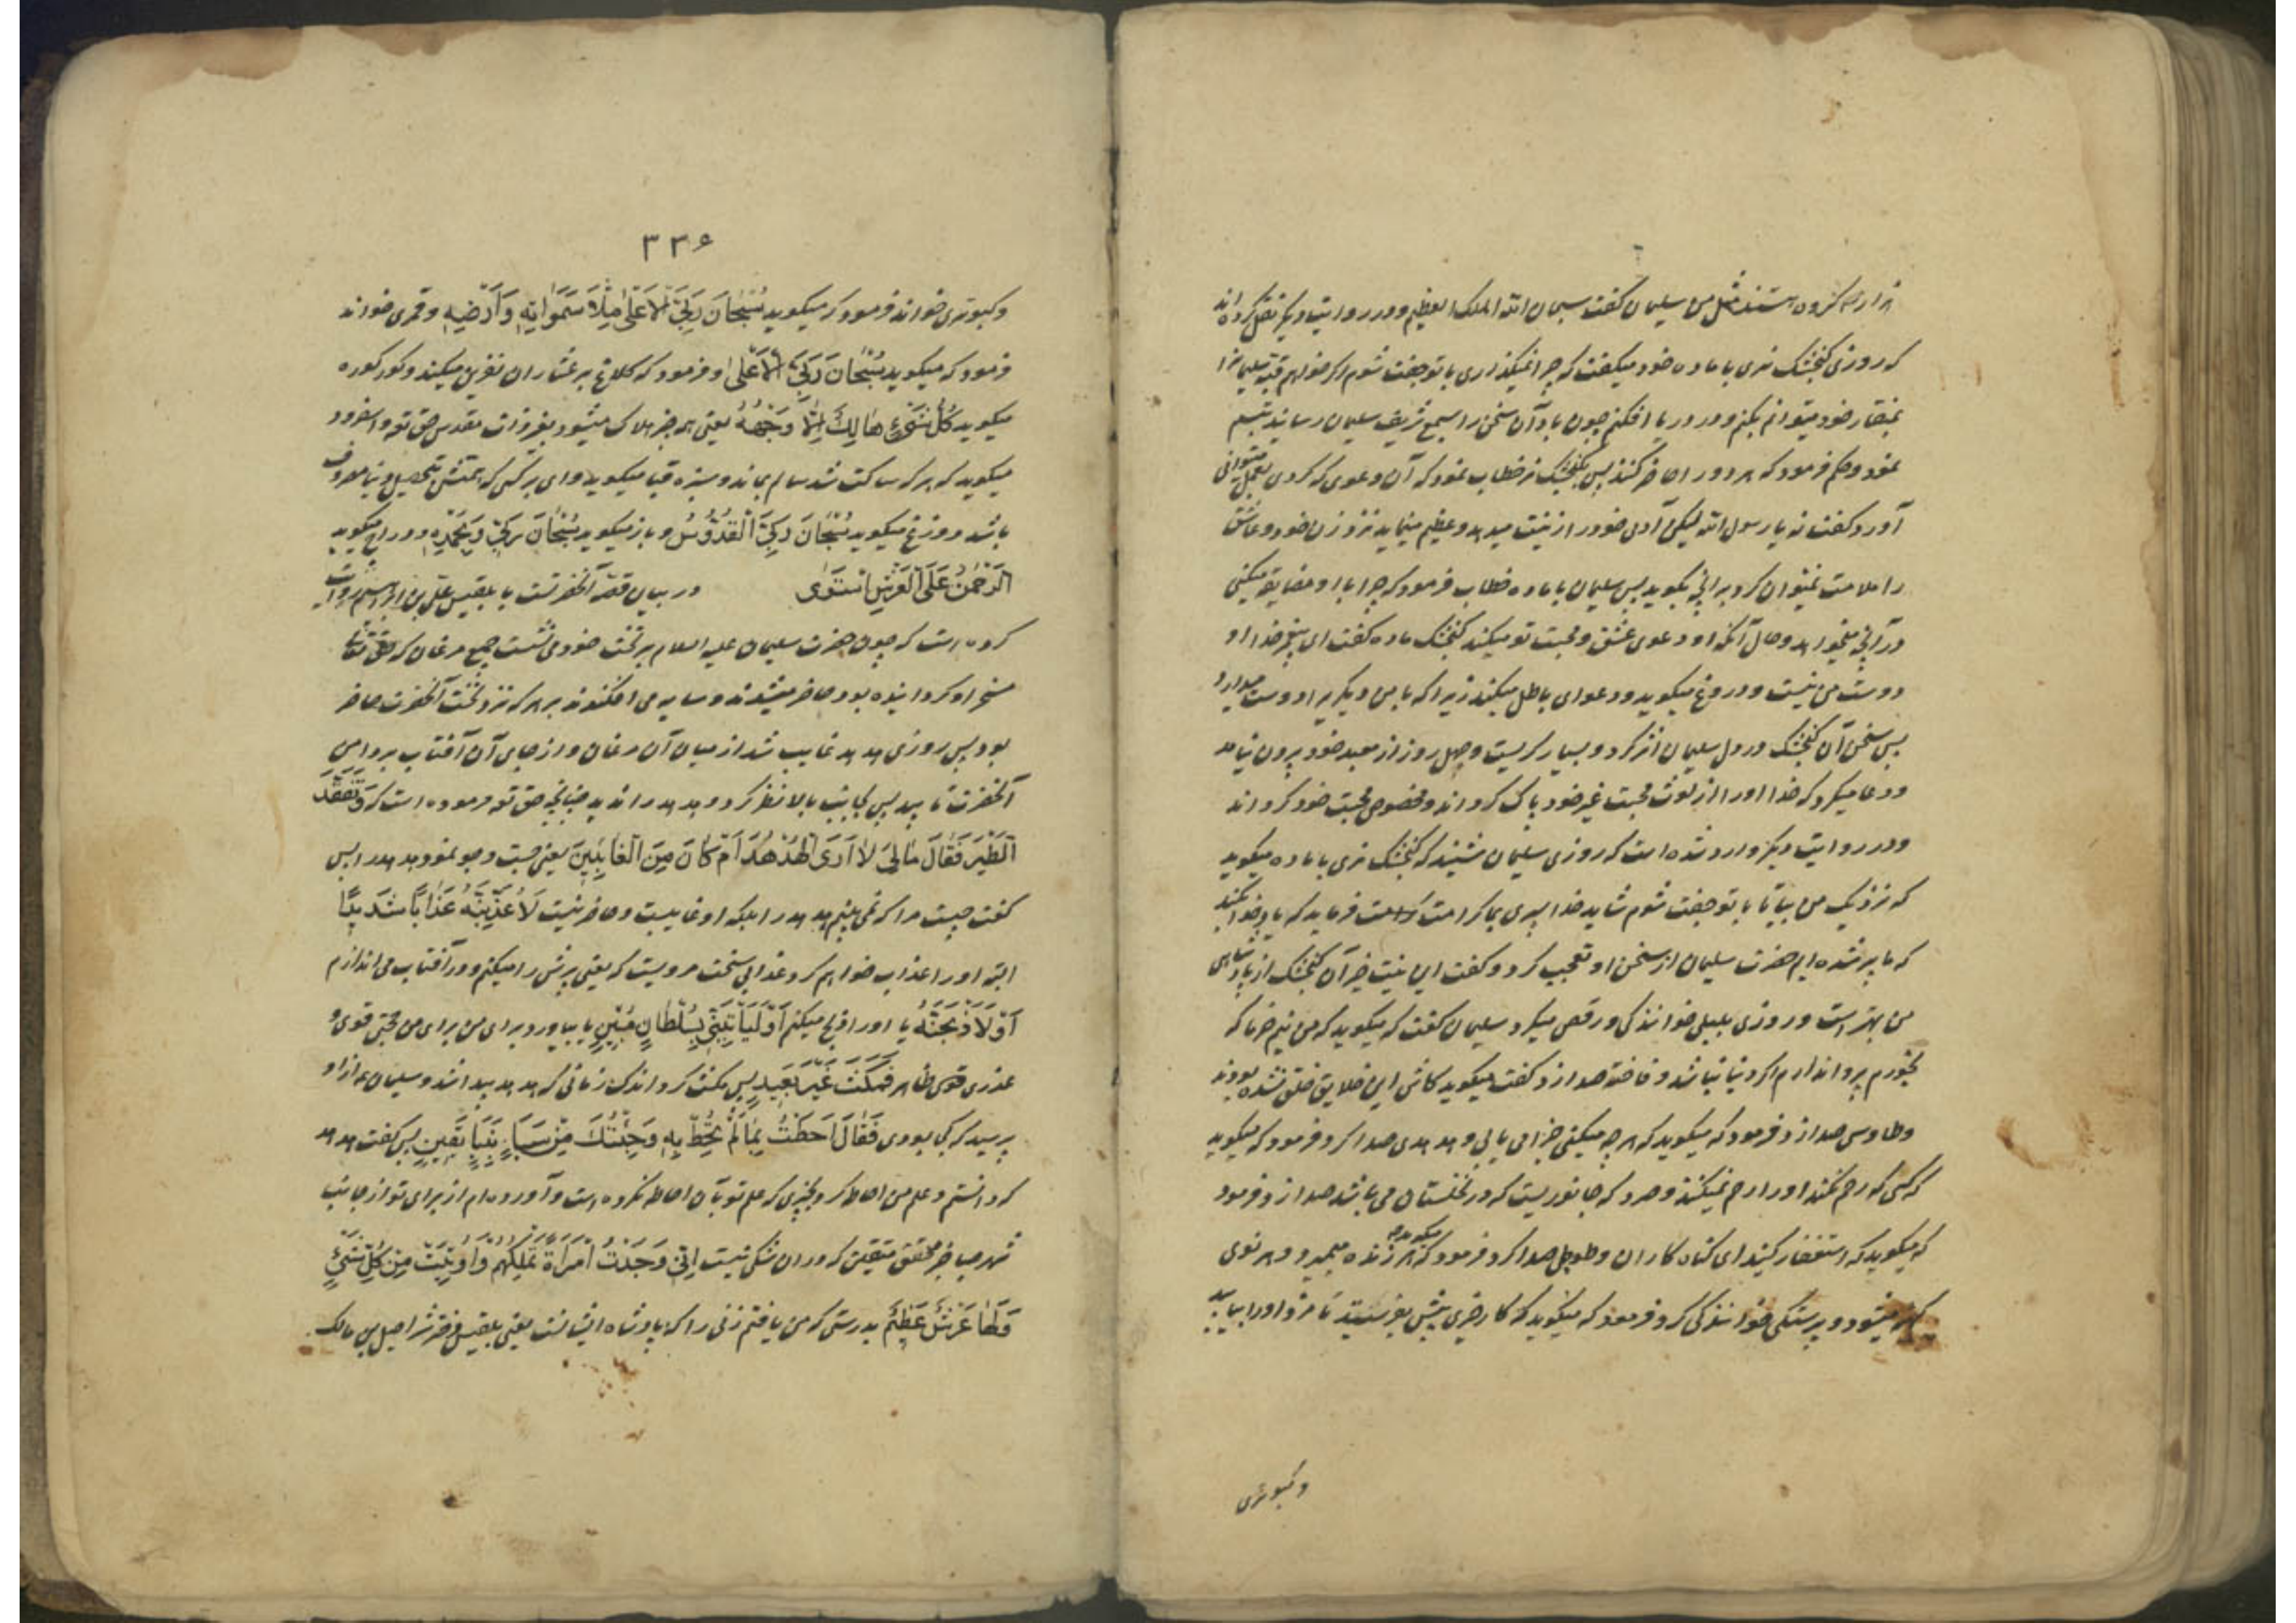 هزار امر کرده هستند مثل من سلیمان گفت سبحان الله الملک العظیم و در روایت دیگر نقل کرده‌اند
که روزی گنجشک نری با ماده خود میگفت که چرا نمیگذاری با تو جفت شوم اگر خواهم قبه سلیمانرا
بمنقار خود میتوانم بکنم و در دریا افکنم چون باد آن سخن را بسمع شریف سلیمان رسانید تبسم
نمود و حکم فرمود که هر دو را حاضر کنند پس بگنجشک نر خطاب نمود که آن دعوی که کردی بعمل میتوانی
آورد گفت نه یا رسول الله لیکن آدمی خود را زینت میدهد و عظیم مینماید نزد زن خود و عاشق
را ملامت نمیتوان کرد بر آنچه بگوید پس سلیمان با ماده خطاب فرمود که چرا با او مضایقه میکنی
در آنچه میخواهد و حال آنکه او دعوی عشق و محبت تو میکند گنجشک ماده گفت ای پیغمبر خدا او
دوست من نیست و دروغ میگوید و دعوای باطل میکند زیرا که با من دیگریرا دوست میدارد
پس سخن آن گنجشک در دل سلیمان اثر کرد و بسیار گریست و چهل روز از معبد خود بیرون نیامد
و دعا میکرد که خدا او را از لوث محبت غیر خود پاک گرداند و مخصوص محبت خود گرداند
و در روایت دیگر وارد شده است که روزی سلیمان شنید که گنجشک نری با ماده میگوید
که نزدیک من بیا تا با تو جفت شوم شاید خدا پسری بما کرامت فرماید که یاد خدا بکند
که ما پیر شده‌ایم حضرت سلیمان از سخن او تعجب کرد و گفت این نیت خیر آن گنجشک از پادشاهی
من بهتر است و روزی بلبلی خوانندگی و رقص میکرد سلیمان گفت که میگوید که من نیم خرما که
بخورم پروا ندارم اگر دنیا نباشد و فاخته صدا زد گفت میگوید کاش این خلایق خلق نشده بودند
و طاوس صدا زد فرمود که میگوید که هر چه میکنی جزا می یابی و هدهدی صدا کرد فرمود که میگوید
که کسی که رحم نکند او را رحم نمیکنند و صرد که جانوریست که در نخلستان می باشد صدا زد فرمود
که میگوید که استغفار کنید ای گناه کاران و طوطی صدا کرد فرمود که میگوید که هر زنده میمیرد و هر نوی
کهنه میشود و پرستکی خوانندگی کرد فرمود که میگوید که کار خیری پیش بفرستید تا مزد او را بیابید
و کبوتری
۳۳۶
و کبوتری خواند فرمود که میگوید سُبْحَانَ رَبِّيَ الْأَعْلَى مِلْأَ سَمَوَاتِهِ وَأَرْضِهِ و قمری خواند
فرمود که میگوید سُبْحَانَ رَبِّيَ الْأَعْلَى و فرمود که کلاغ بر عشاران نفرین میکند و کورکوره
میگوید كُلُّ شَيْءٍ هَالِكٌ إِلَّا وَجْهَهُ یعنی همه چیز هلاک میشود بغیر ذات مقدس حق تعه و اسفرود
میگوید که هر که ساکت شد سالم بماند و سبزه قبا میگوید وای بر کسی که همتش تحصیل دنیا مصروف
باشد و وزغ میگوید سُبْحَانَ رَبِّيَ الْقُدُّوسِ و باز میگوید سُبْحَانَ رَبِّي وَبِحَمْدِهِ و دراج میگوید
الرَّحْمَنُ عَلَى الْعَرْشِ اسْتَوَى در بیان قصه آنحضرتست با بلقیس علی بن ابراهیم روایت
کرده است که چون حضرت سلیمان علیه السلام بر تخت خود می نشست جمیع مرغان که حق تعالی
مسخر او گردانیده بود حاضر میشدند و سایه می افکندند بر هر که نزد تخت آنحضرت حاضر
بود پس روزی هدهد غایب شد از میان آن مرغان و از جای آن آفتاب بر دامن
آنحضرت تابید پس بجانب بالا نظر کرد و هدهد را ندید چنانچه حق تعه فرموده است که وَتَفَقَّدَ
الطَّيْرَ فَقَالَ مَا لِيَ لَا أَرَى الْهُدْهُدَ أَمْ كَانَ مِنَ الْغَائِبِينَ یعنی جست و جو نمود هدهد را پس
گفت چیست مرا که نمی بینم هدهد را بلکه او غایبست و حاضر نیست لَأُعَذِّبَنَّهُ عَذَابًا شَدِيدًا
البته او را عذاب خواهم کرد عذابی سخت مرویست که یعنی پرش را میکنم و در آفتاب می اندازم
أَوْ لَأَذْبَحَنَّهُ یا او را ذبح میکنم أَوْ لَيَأْتِيَنِّي بِسُلْطَانٍ مُبِينٍ یا بیاورد برای من برای من حجتی قوی و
عذری قوی ظاهر فَمَكَثَ غَيْرَ بَعِيدٍ پس مکث کرد اندک زمانی که هدهد پیدا شد و سلیمان ع از او
پرسید که کجا بودی فَقَالَ أَحَطْتُ بِمَا لَمْ تُحِطْ بِهِ وَجِئْتُكَ مِنْ سَبَإٍ بِنَبَإٍ يَقِينٍ پس گفت هدهد
که دانستم و علم من احاطه کرد بچیزی که علم تو بآن احاطه نکرده است و آورده‌ام از برای تو از جانب
شهر سبا خبر محقق متیقن که در ان شکی نیست إِنِّي وَجَدْتُ امْرَأَةً تَمْلِكُهُمْ وَأُوتِيَتْ مِنْ كُلِّ شَيْءٍ
وَلَهَا عَرْشٌ عَظِيمٌ بدرستی که من یافتم زنی را که پادشاه ایشانست یعنی بلقیس دختر شراحیل بن مالک